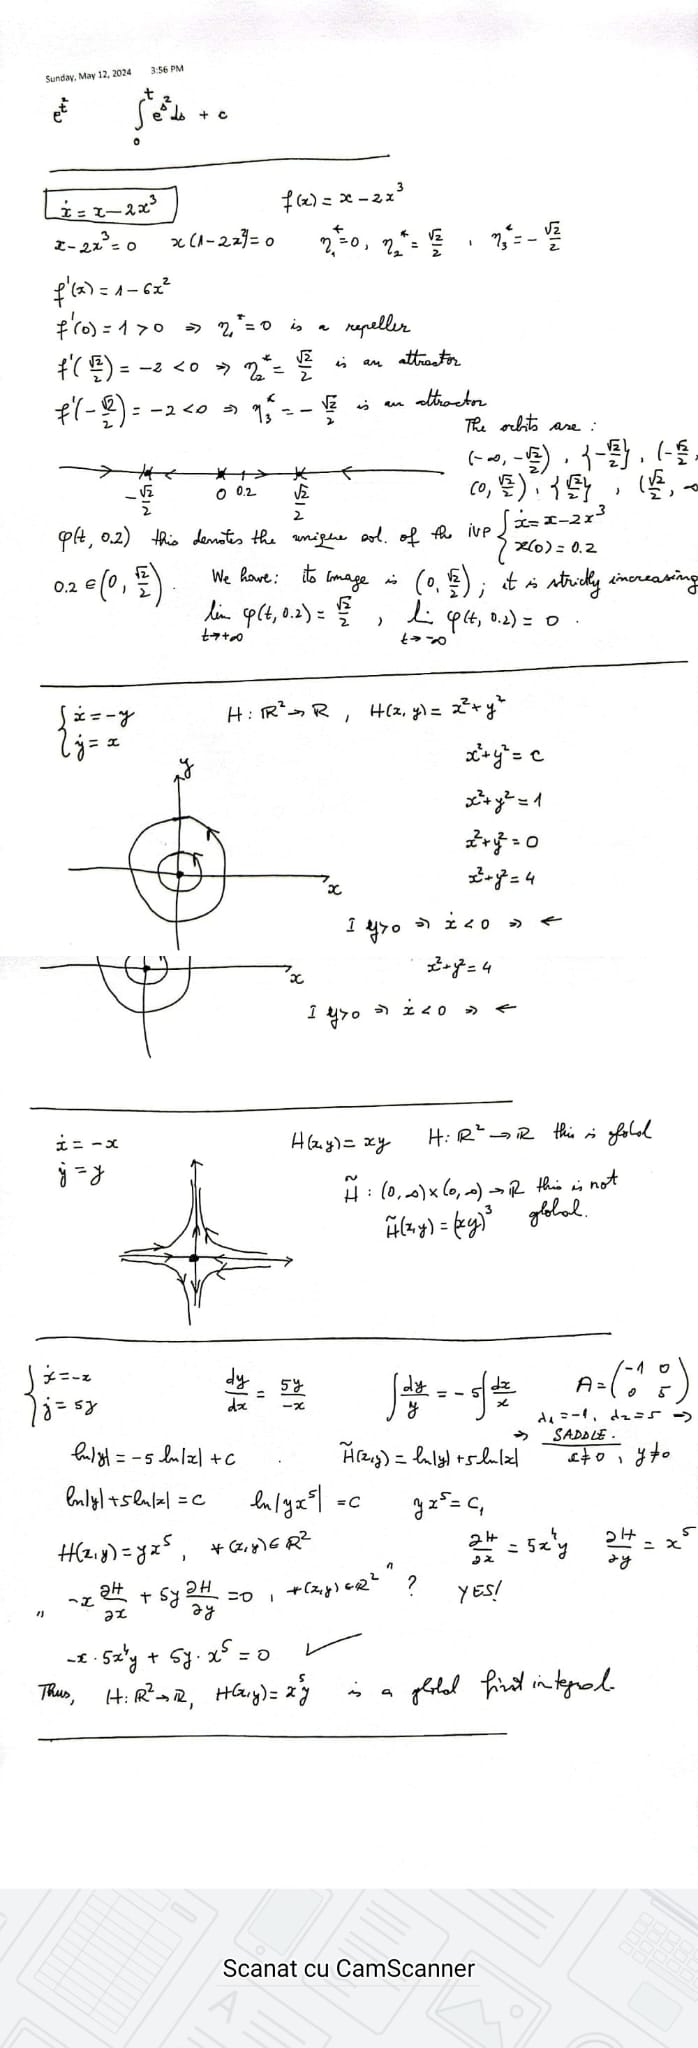 Sunday, May 12, 2024 3:56 PM
e^{t^2} ∫_0^t e^{s^2} ds + c
ẋ = x − 2x³ f(x) = x − 2x³
x − 2x³ = 0 x(1 − 2x²) = 0 η₁* = 0, η₂* = √2/2, η₃* = −√2/2
f'(x) = 1 − 6x²
f'(0) = 1 > 0 ⇒ η₁* = 0 is a repeller
f'(√2/2) = −2 < 0 ⇒ η₂* = √2/2 is an attractor
f'(−√2/2) = −2 < 0 ⇒ η₃* = −√2/2 is an attractor
The orbits are :
(−∞, −√2/2), {−√2/2}, (−√2
(0, √2/2), {√2/2}, (√2/2, ∞
−√2/2 0 0.2 √2/2
φ(t, 0.2) this denotes the unique sol. of the ivp { ẋ = x − 2x³
x(0) = 0.2
0.2 ∈ (0, √2/2). We have: its image is (0, √2/2); it is strictly increasing
lim_{t→+∞} φ(t, 0.2) = √2/2, li_{t→−∞} φ(t, 0.2) = 0.
{ ẋ = −y H : ℝ² → ℝ, H(x, y) = x² + y²
ẏ = x
x² + y² = c
y
x² + y² = 1
x² + y² = 0
x² + y² = 4
x
I y>0 ⇒ ẋ < 0 ⇒ ←
x² + y² = 4
x
I y>0 ⇒ ẋ < 0 ⇒ ←
ẋ = −x H(x,y) = xy H : ℝ² → ℝ this is global
ẏ = y
H̃ : (0, ∞) × (0, ∞) → ℝ this is not
H̃(x,y) = (xy)³ global.
{ ẋ = −x dy/dx = 5y/−x ∫ dy/y = −5 ∫ dx/x A = (−1 0
ẏ = 5y 0 5)
λ₁ = −1, λ₂ = 5 ⇒
⇒ SADDLE.
ln|y| = −5 ln|x| + c. H̃(x,y) = ln|y| + 5 ln|x| x≠0, y≠0
ln|y| + 5 ln|x| = c ln|yx⁵| = c yx⁵ = c₁
H(x,y) = yx⁵, ∀ (x,y) ∈ ℝ² ∂H/∂x = 5x⁴y ∂H/∂y = x⁵
„ −x ∂H/∂x + 5y ∂H/∂y = 0, ∀(x,y) ∈ ℝ² " ? YES!
−x · 5x⁴y + 5y · x⁵ = 0 ✓
Thus, H : ℝ² → ℝ, H(x,y) = x⁵y is a global first integral.
Scanat cu CamScanner